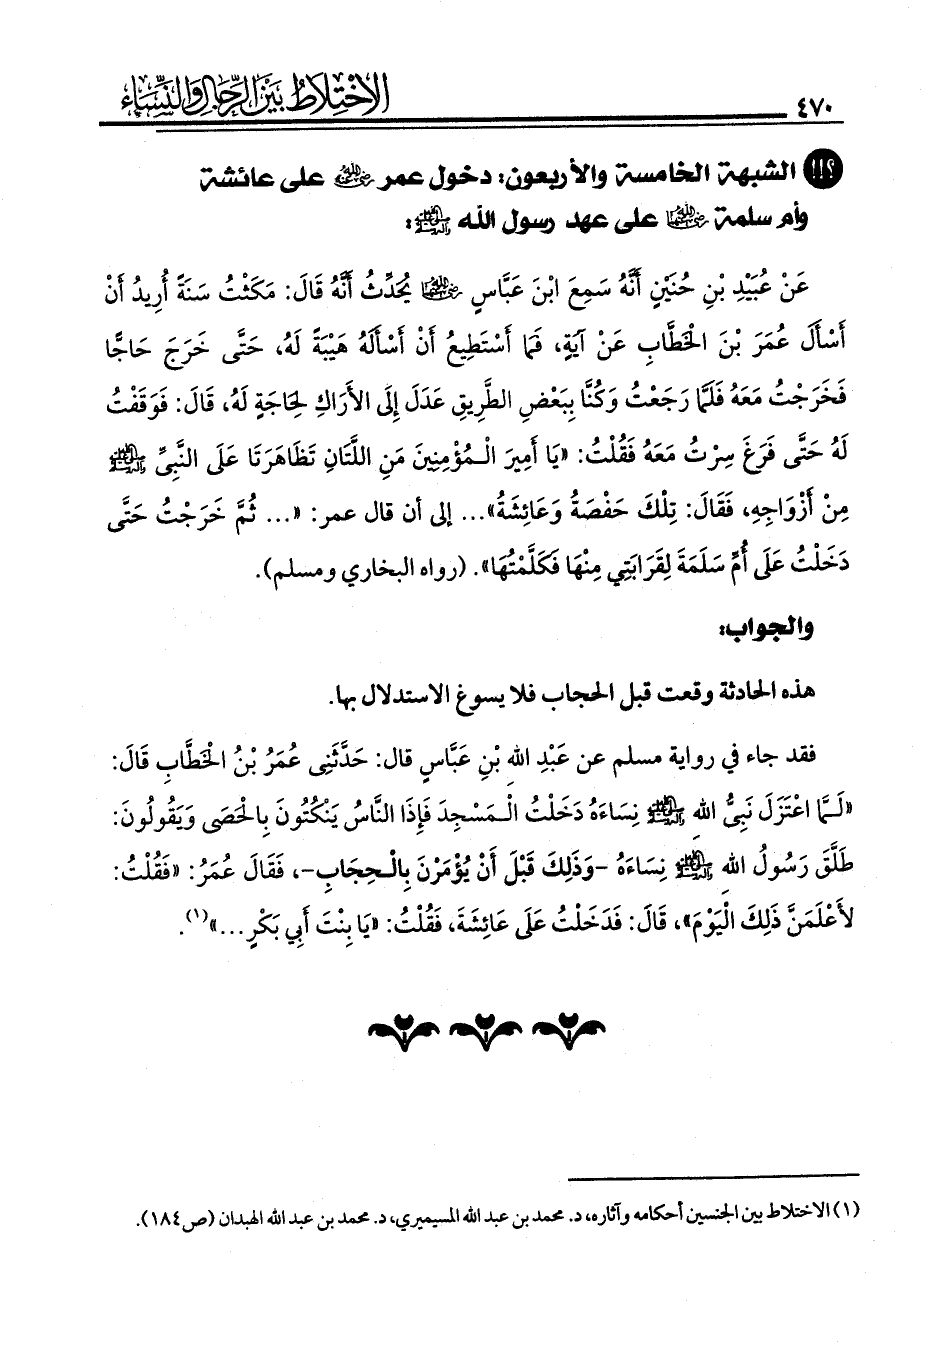 ٤٧٠ الاختلاط بين الرجال والنساء
؟!! الشبهة الخامسة والأربعون: دخول عمر رضي الله عنه على عائشة
وأم سلمة رضي الله عنهما على عهد رسول الله ﷺ:
عَنْ عُبَيْدِ بْنِ حُنَيْنٍ أَنَّهُ سَمِعَ ابْنَ عَبَّاسٍ رضي الله عنهما يُحَدِّثُ أَنَّهُ قَالَ: مَكَثْتُ سَنَةً أُرِيدُ أَنْ
أَسْأَلَ عُمَرَ بْنَ الْخَطَّابِ عَنْ آيَةٍ، فَمَا أَسْتَطِيعُ أَنْ أَسْأَلَهُ هَيْبَةً لَهُ، حَتَّى خَرَجَ حَاجًّا
فَخَرَجْتُ مَعَهُ فَلَمَّا رَجَعْتُ وَكُنَّا بِبَعْضِ الطَّرِيقِ عَدَلَ إِلَى الأَرَاكِ لِحَاجَةٍ لَهُ، قَالَ: فَوَقَفْتُ
لَهُ حَتَّى فَرَغَ سِرْتُ مَعَهُ فَقُلْتُ: «يَا أَمِيرَ الْمُؤْمِنِينَ مَنِ اللَّتَانِ تَظَاهَرَتَا عَلَى النَّبِيِّ ﷺ
مِنْ أَزْوَاجِهِ، فَقَالَ: تِلْكَ حَفْصَةُ وَعَائِشَةُ»... إلى أن قال عمر: «... ثُمَّ خَرَجْتُ حَتَّى
دَخَلْتُ عَلَى أُمِّ سَلَمَةَ لِقَرَابَتِي مِنْهَا فَكَلَّمْتُهَا». (رواه البخاري ومسلم).
والجواب:
هذه الحادثة وقعت قبل الحجاب فلا يسوغ الاستدلال بها.
فقد جاء في رواية مسلم عن عَبْدِ اللهِ بْنِ عَبَّاسٍ قال: حَدَّثَنِي عُمَرُ بْنُ الْخَطَّابِ قَالَ:
«لَمَّا اعْتَزَلَ نَبِيُّ اللهِ ﷺ نِسَاءَهُ دَخَلْتُ الْمَسْجِدَ فَإِذَا النَّاسُ يَنْكُتُونَ بِالْحَصَى وَيَقُولُونَ:
طَلَّقَ رَسُولُ اللهِ ﷺ نِسَاءَهُ -وَذَلِكَ قَبْلَ أَنْ يُؤْمَرْنَ بِالْحِجَابِ-، فَقَالَ عُمَرُ: «فَقُلْتُ:
لأَعْلَمَنَّ ذَلِكَ الْيَوْمَ»، قَالَ: فَدَخَلْتُ عَلَى عَائِشَةَ، فَقُلْتُ: «يَا بِنْتَ أَبِي بَكْرٍ...»(١).
(١) الاختلاط بين الجنسين أحكامه وآثاره، د. محمد بن عبد الله المسيميري، د. محمد بن عبد الله الهبدان (ص١٨٤).